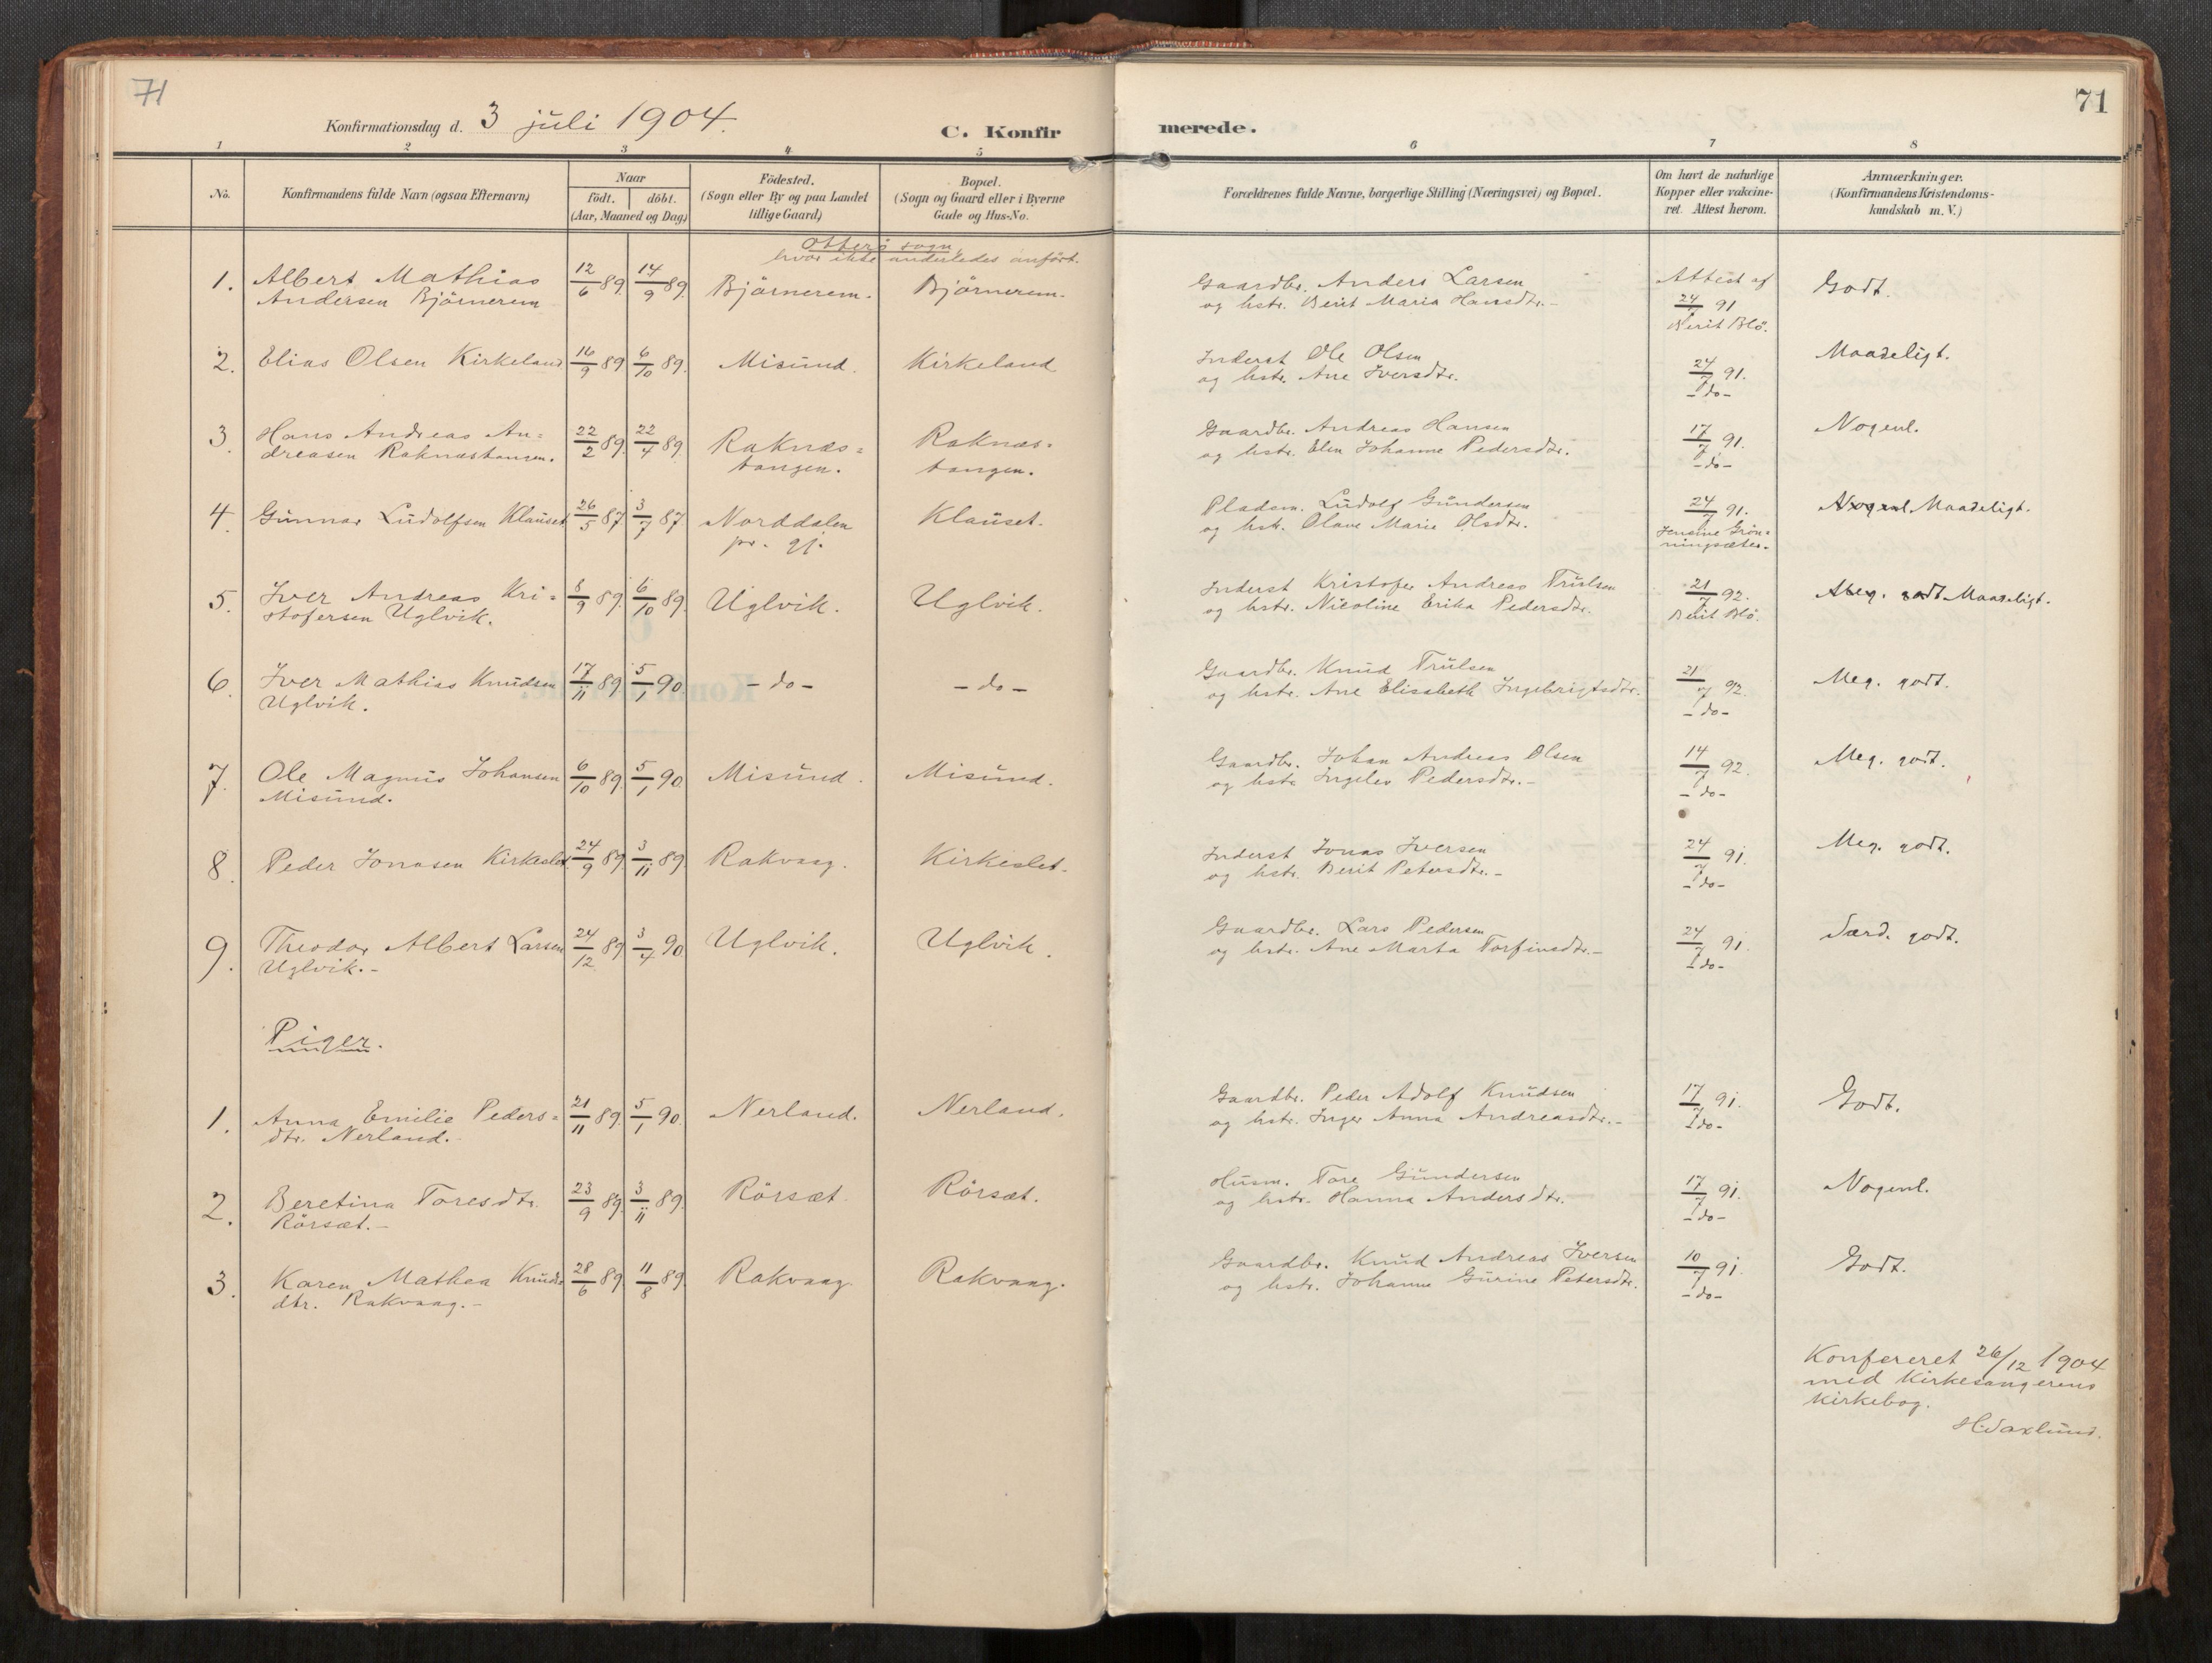 71
71
Konfirmationsdag d. 3 juli 1904.
C. Konfirmerede.
1 2 3 4 5 6 7 8
No.
Konfirmandens fulde Navn (ogsaa Efternavn)
Naar
födt. döbt.
(Aar, Maaned og Dag)
Födested.
(Sogn eller By og paa Landet
tillige Gaard)
Bopæl.
(Sogn og Gaard eller i Byerne
Gade og Hus-No.
Forældrenes fulde Navne, borgerlige Stilling (Næringsvei) og Bopæl.
Om havt de naturlige
Kopper eller vaccine-
ret. Attest herom.
Anmærkninger.
(Konfirmandens Kristendoms-
kundskab m. V.)
Otterö sogn,
hvor ikke anderledes anfört.
1. Albert Mathias 12/6 89. 14/9 89. Björnerem. Björnerem. Gaardbr. Anders Larsen Attest af Godt.
Andersen Björnerem og hstr. Berit Maria Hansdtr.- 24/7 91
Berit Blö.
2. Elias Olsen Kirkeland 16/9 89 6/10 89. Misund. Kirkeland Inderst Ole Olsen 24/7 91. Maadeligt.
og hstr. Ane Iversdtr. -do-
3. Hans Andreas An= 22/2 89. 22/4 89. Raknæs= Raknæs= Gaardbr. Andreas Hansen 17/7 91. Nogenl.
dreasen Raknæstangen. tangen. tangen. og hstr. Elen Johanne Pedersdtr. -do-
4. Gunnar Ludolfsen Klauset 26/5 87. 3/7 87. Norddalen Klauset. Pladsm. Ludolf Gundersen 24/7 91. Nogenl. Maadeligt.
pr. gj. og hstr. Olave Marie Olsdtr. Jensine Grön=
ningsæter.
5. Iver Andreas Kri= 8/9 89. 6/10 89. Uglvik. Uglvik. Inderst Kristofer Andreas Trulsen 21/7 92. Meg. godt Maadeligt.
stofersen Uglvik. og hstr. Nicoline Erika Pedersdtr. Berit Blö.
6. Iver Mathias Knudsen 17/11 89 5/1 90. -do- -do- Gaardbr. Knud Trulsen 21/7 92. Meg. godt.
Uglvik. og hstr. Ane Elisabeth Ingebrigtsdtr. -do-
7. Ole Magnus Johansen 6/10 89. 5/1 90. Misund. Misund. Gaardbr. Johan Andreas Olsen 14/7 92. Meg. godt.
Misund. og hstr. Ingelev Pedersdtr.- -do-
8. Peder Jonasen Kirkeslet 24/9 89. 3/11 89. Rakvaag. Kirkeslet. Inderst Jonas Iversen 24/7 91. Meg. godt.
og hstr. Berit Petersdtr.- -do-
9. Theodor Albert Larsen 24/12 89. 3/4 90. Uglvik. Uglvik. Gaardbr. Lars Pedersen 24/7 91. Særd. godt.
Uglvik.- og hstr. Ane Marta Torfinsdtr.- -do-
Piger.
1. Anna Emilie Peders= 21/11 89. 5/1 90. Nerland. Nerland. Gaardbr. Peder Adolf Knudsen 17/7 91. Godt.
dtr. Nerland. og hstr. Inger Anna Andreasdtr.- -do-
2. Beretina Toresdtr. 23/9 89. 3/11 89. Rörsæt. Rörsæt. Husm. Tore Gundersen 17/7 91. Nogenl.
Rörsæt.- og hstr. Hanna Andersdtr. -do-
3. Karen Mathea Knuds 28/6 89. 11/8 89. Rakvaag. Rakvaag. Gaardbr. Knud Andreas Iversen 10/7 91. Godt.
dtr. Rakvaag.- og hstr. Johanne Gurine Petersdtr. -do-
Konfereret 26/12 1904
med Kirkesangerens
kirkebog.
H. Saxlund.